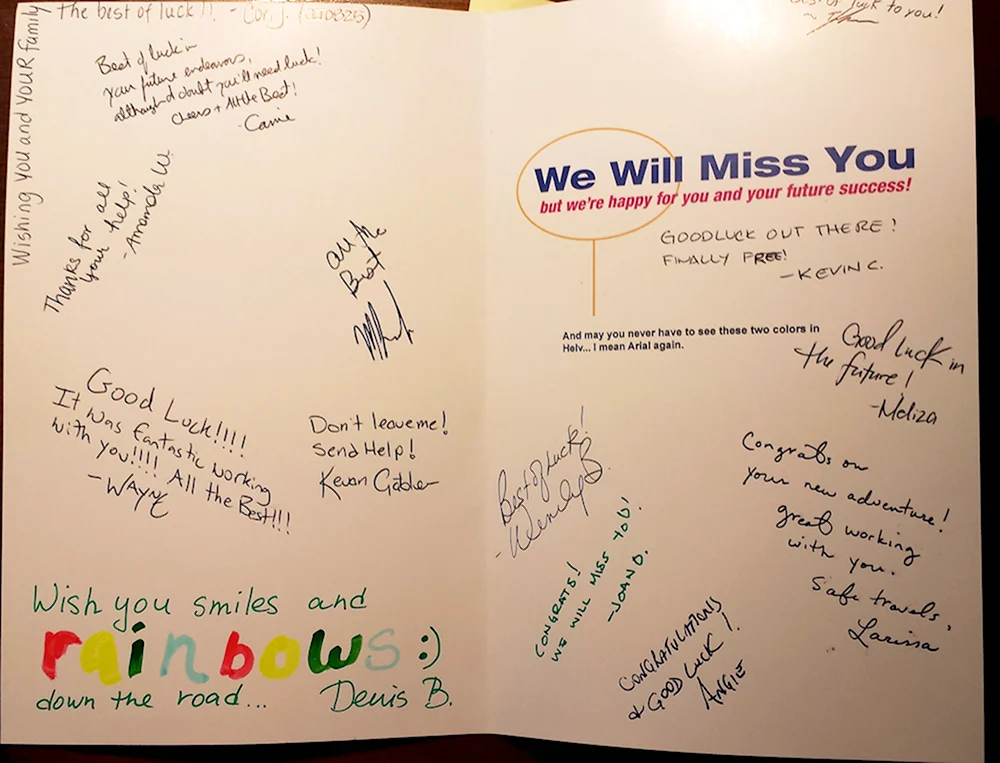 Wishing you and your family
The best of luck!! - Cori J.
Best of luck in
your future endeavors,
although I doubt you'll need luck!
Cheers + All the Best!
- Carrie
Thanks for all
your help!
- Amanda W.
All the
Best
Good Luck!!!!
It was fantastic working
with you!!!! All the Best!!!
- WAYNE
Don't leave me!
Send Help!
Kevan
Wish you smiles and
rainbows :)
down the road... Denis B.
luck to you!
We Will Miss You
but we're happy for you and your future success!
GOODLUCK OUT THERE!
FINALLY FREE!
- KEVIN C.
And may you never have to see these two colors in
Helv... I mean Arial again.
Good Luck in
the future!
- Meliza
Best of Luck!
- Wendy B.
Congrats on
your new adventure!
great working
with you.
Safe travels,
Larissa
CONGRATS!
WE WILL MISS YOU!
- JOAN D.
CONGRATULATIONS
& GOOD LUCK!
ANGIE